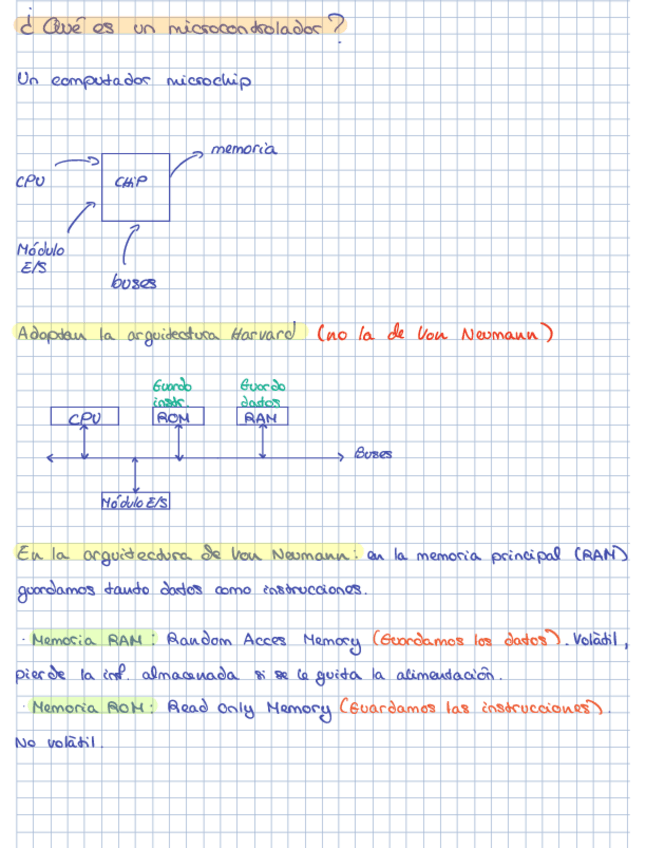 ¿Qué es un microcontrolador?
Un computador microchip
memoria
CPU
CHIP
Módulo
E/S
buses
Adoptan la arquitectura Harvard (no la de Von Neumann)
Guardo
instr.
Guardo
datos
CPU
ROM
RAM
Buses
Módulo E/S
En la arquitectura de Von Neumann: en la memoria principal (RAM)
guardamos tanto datos como instrucciones.
· Memoria RAM: Random Acces Memory (Guardamos los datos). Volátil,
pierde la inf. almacenada si se le quita la alimentación.
· Memoria ROM: Read Only Memory (Guardamos las instrucciones).
No volátil.